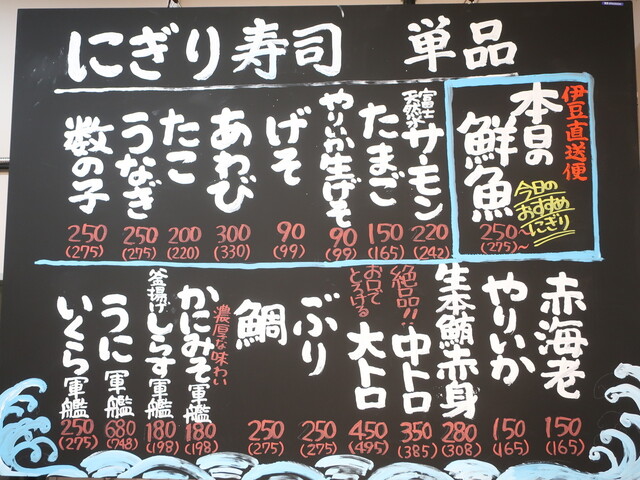 にぎり寿司 単品
伊豆直送便
本日の
鮮魚
今日の
おすすめ
にぎり
250~
(275)~
サーモン
220
(242)
たまご
150
(165)
やりいか生げそ
90
(99)
げそ
90
(99)
あわび
300
(330)
たこ
200
(220)
うなぎ
250
(275)
数の子
250
(275)
赤海老
150
(165)
やりいか
150
(165)
生本鮪赤身
280
(308)
絶品!!
中トロ
350
(385)
お口で
とろける
大トロ
450
(495)
ぶり
250
(275)
鯛
250
(275)
濃厚な味わい
かにみそ軍艦
180
(198)
釜揚げしらす軍艦
180
(198)
うに軍艦
680
(748)
いくら軍艦
250
(275)